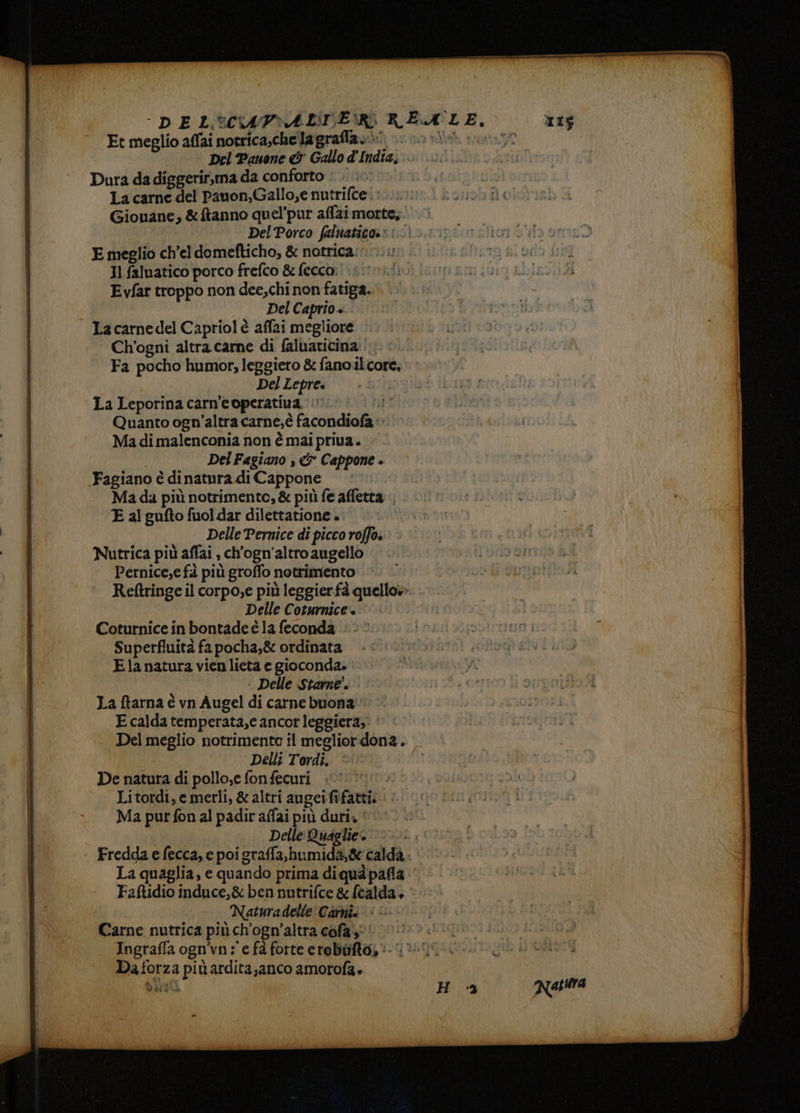 DEL CAVALIER REALE. 115
Et meglio aſſai notrica,che la graſſa.
Del Pauone & Gallo d'India,
Dura da diggerir,ma da conforto
La carne del Pauon,Gallo,e nutriſce
Giouane, & ſtanno quel'pur aſſai morte,
Del Porco ſaluatico.
E meglio ch'el domeſticho, & notrica
Il ſaluatico porco freſco & ſecco
Eyſar troppo non dee,chi non fatiga.
Del Caprio.
La carne del Capriol è aſſai megliore
Ch'ogni altra carne di ſaluaticina
Fa pocho humor, leggiero & ſano il core,
Del Lepre.
La Leporina carn'e operatiua
Quanto ogn'altra carne,è facondioſa
Ma di malenconia non è mai priua.
Del Fagiano , & Cappone.
Fagiano è di natura di Cappone
Ma da più notrimento, & più ſe affetta
E al guſto ſuol dar dilettatione.
Delle Pernice di picco roſſo.
Nutrica più aſſai , ch'ogn'altro augello
Pernice,e fà più groſſo notrimento
Reſtringe il corpo,e più leggier fà quello.
Delle Coturnice.
Coturnice in bontade è la feconda
Superfluità fa pocha,& ordinata
E la natura vien lieta e gioconda.
Delle Starne.
La ſtarna è vn Augel di carne buona
E calda temperata,e ancor leggiera,
Del meglio notrimento il meglior dona.
Delli Tordi,
De natura di pollo,e ſon ſecuri
Li tordi, e merli, & altri augei ſifatti:
Ma pur ſon al padir aſſai più duri.
Delle Quaglie.
Fredda e ſecca, e poi graſſa,humida,& calda
La quaglia, e quando prima di quà paſſa
Faſtidio induce,& ben nutriſce & ſcalda.
Natura delle Carni.
Carne nutrica più ch'ogn'altra coſa,
Ingraſſa ogn'vn : e fà forte e robuſto,
Da forza più ardita,anco amoroſa.
H 2 Natura